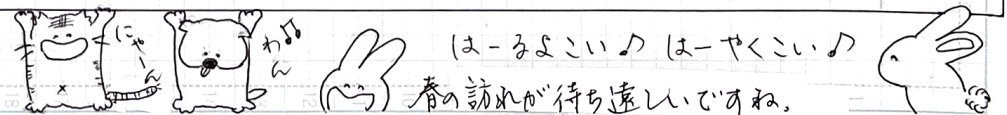 にゃーん
わん♪
はーるよこい♪ はーやくこい♪
春の訪れが待ち遠しいですね。